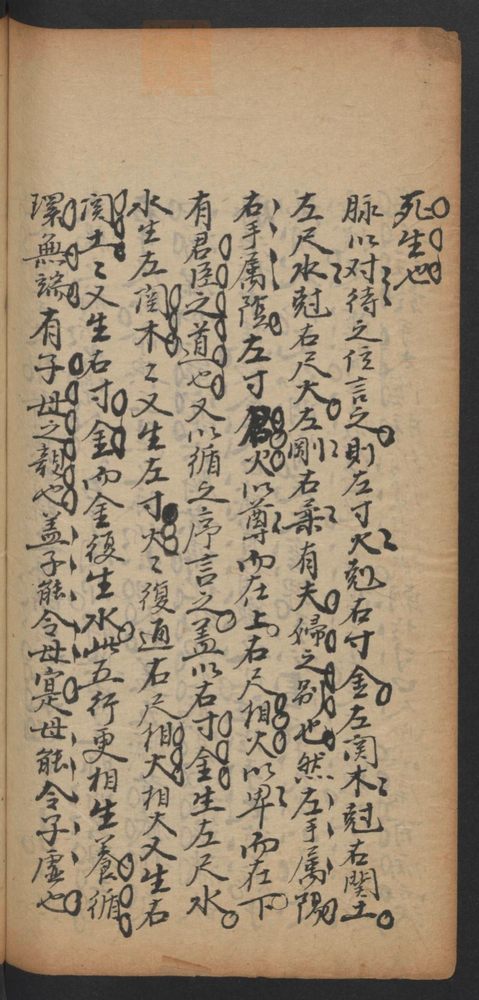 死生也
脉以对待之位言之則左寸火尅右寸金左関木尅右関土
左尺水尅右尺火左剛右柔有夫婦之別也然左手属陽
右手属陰左寸君火以尊而在上右尺相火以卑而在下
有君臣之道也又以循之序言之盖以右寸金生左尺水
水生左関木〻又生左寸火〻復通右尺相火相火又生右
関土〻又生右寸金而金復生水此五行更相生養循
環無端有子母之親也盖子能令母寔母能令子虚也